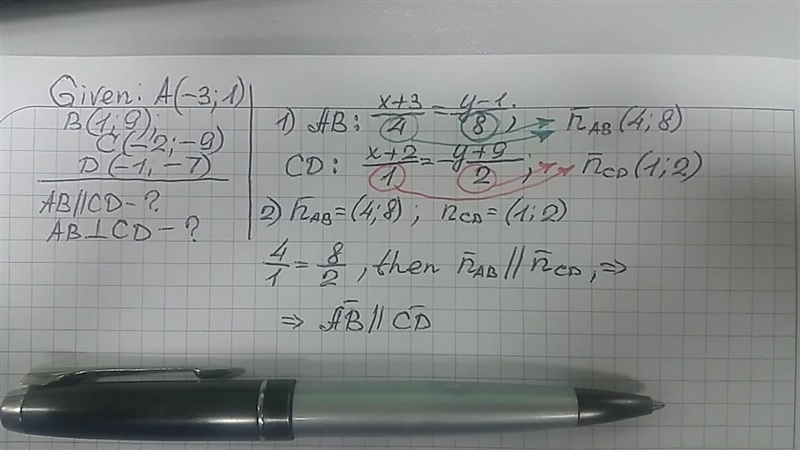 Given: A(-3; 1)
B(1; 9);
C(-2; -9)
D(-1, -7)
AB//CD - ?
AB⊥CD - ?
1) AB: x+3/4 = y-1/8; n̄AB(4; 8)
CD: x+2/1 = y+9/2; n̄CD(1; 2)
2) n̄AB = (4; 8); nCD = (1; 2)
4/1 = 8/2, then n̄AB // n̄CD, ⇒
⇒ AB̄ // CD̄